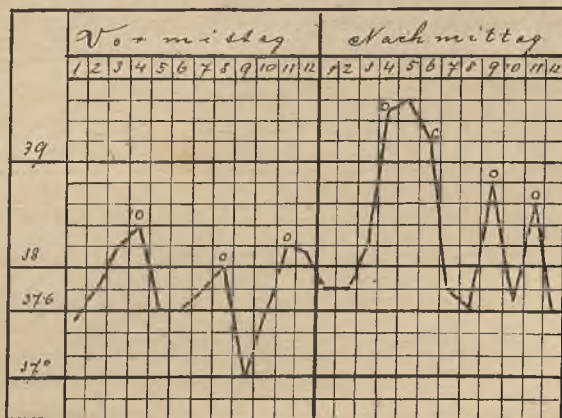 Vormittag Nachmittag
1 2 3 4 5 6 7 8 9 10 11 12 1 2 3 4 5 6 7 8 9 10 11 12
39
38
37.6
37°